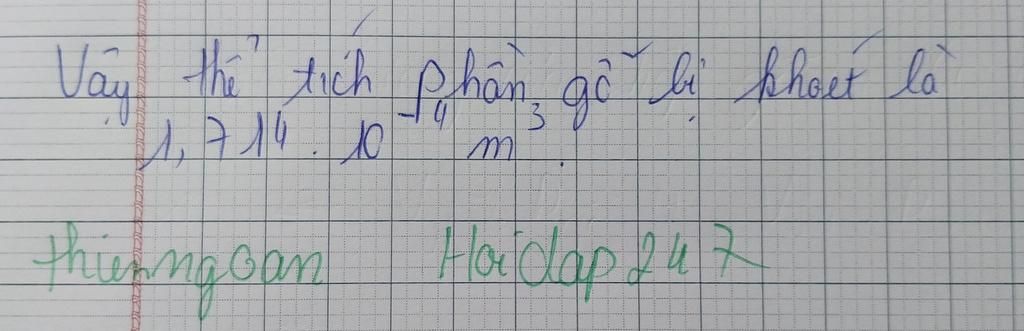 Vậy thể tích phần gỗ bị khoét là
1,714. 10⁻⁴ m³.
thienngoan Hoidap247